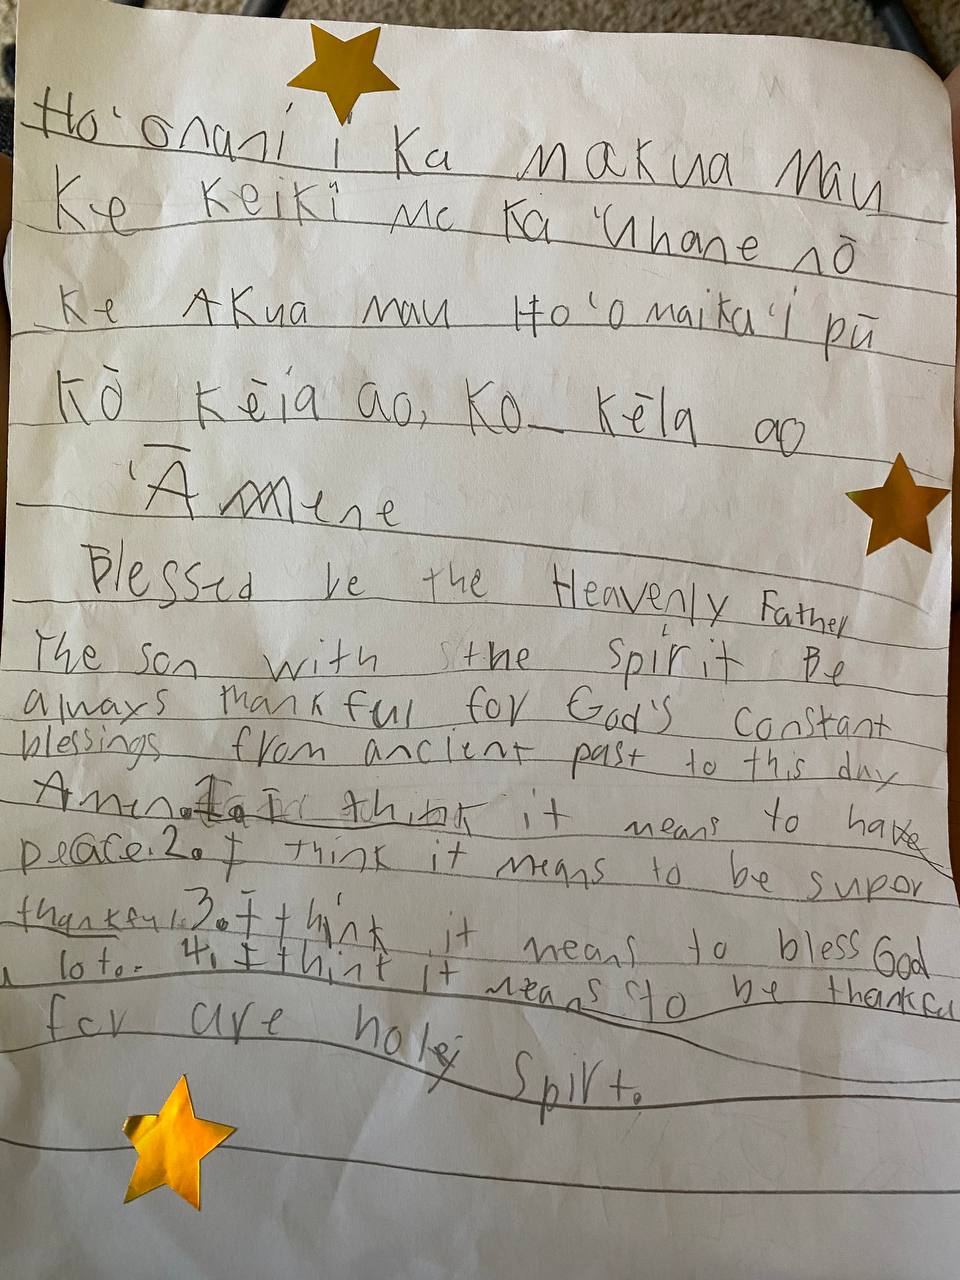 Ho'onani i Ka makua mau
Ke Keiki me Ka 'Uhane nō
Ke AKua mau Ho'omaika'i pū
Kō Kēia ao, Ko Kēla ao
'Āmene
Blessed be the Heavenly Father
The son with the Spirit Be
always thankful for God's constant
blessings from ancient past to this day
Amen. 1. I think it means to have
peace. 2. I think it means to be supor
thankful. 3. I think it means to bless God
a lot. 4. I think it means to be thankful
for are holey Spirt.